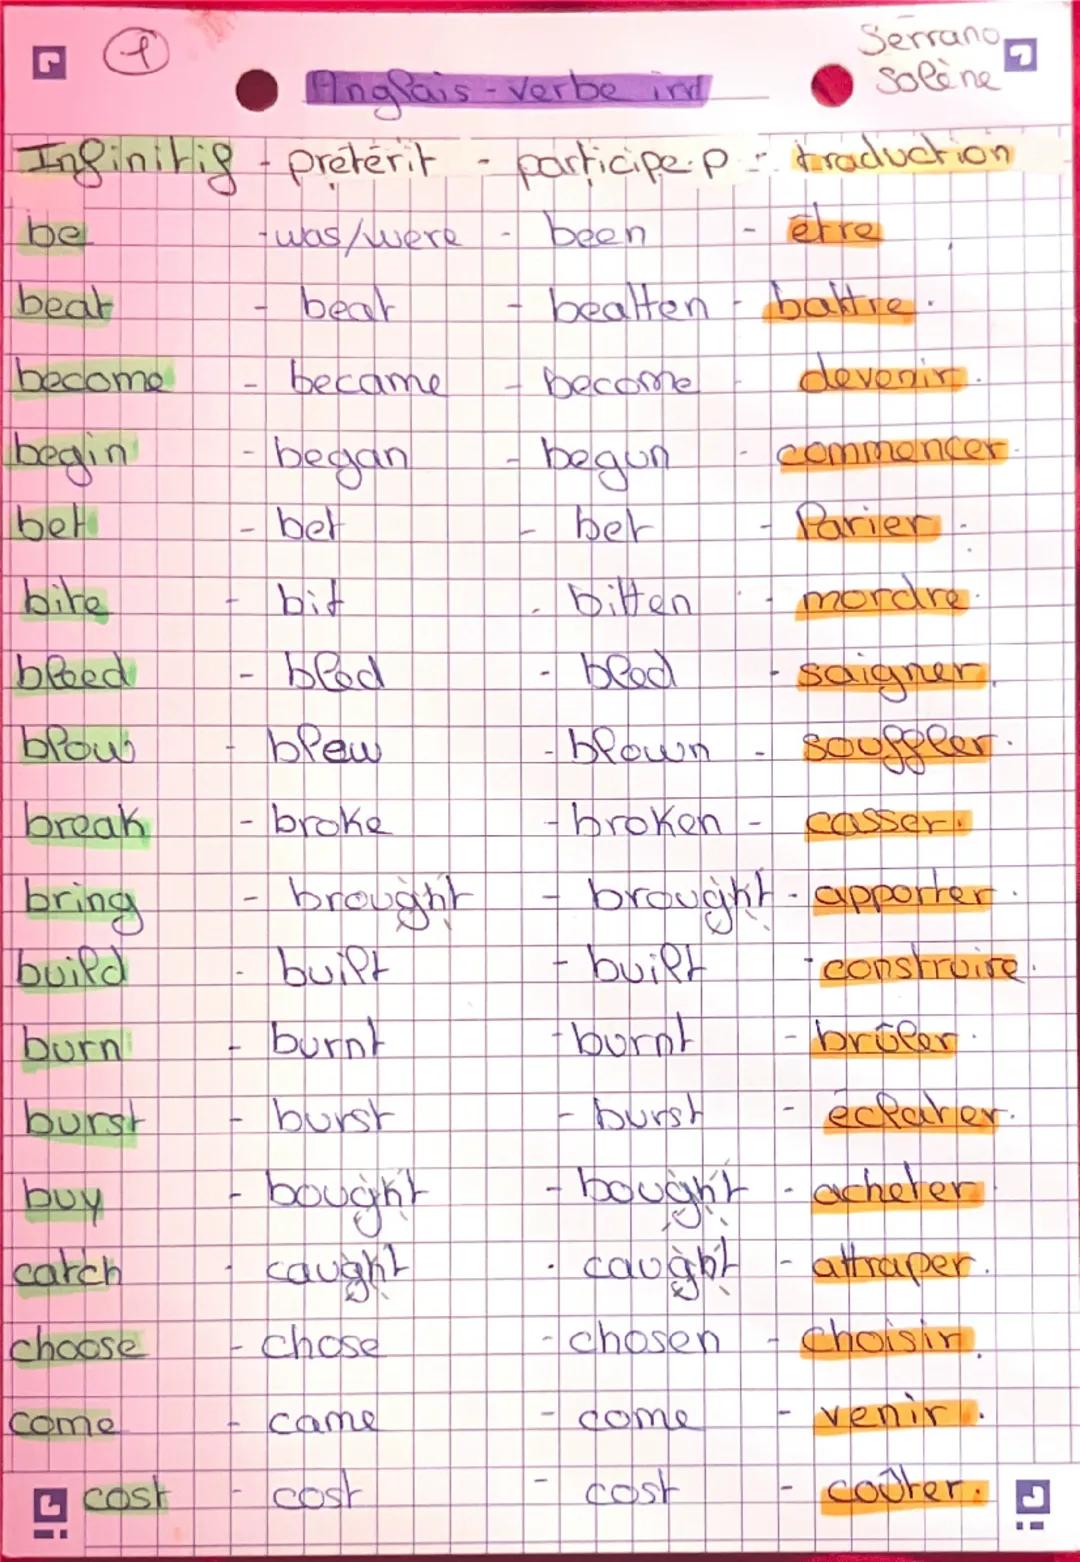 1
Serrano
Solène
Anglais - verbe irr
Infinitif - prétérit - participe.p - traduction
be - was/were - been - être
beat - beat - beatten - battre.
become - became - become - devenir.
begin - began - begun - commencer.
bet - bet - bet - Parier.
bite - bit - bitten - mordre.
bleed - bled - bled - saigner.
blow - blew - blown - souffler.
break - broke - broken - casser.
bring - brought - brought - apporter.
build - built - built - construire.
burn - burnt - burnt - brûler.
burst - burst - burst - éclater.
buy - bought - bought - acheter
catch - caught - caught - attraper.
choose - chose - chosen - choisir.
come - came - come - venir.
cost - cost - cost - coûter.